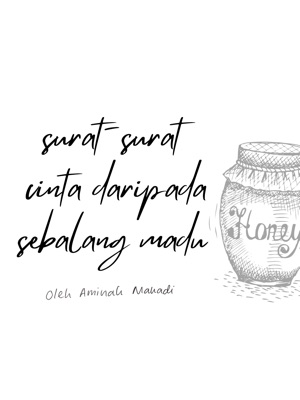 surat-surat
cinta daripada
sebalang madu
Honey
Oleh Aminah Mahadi